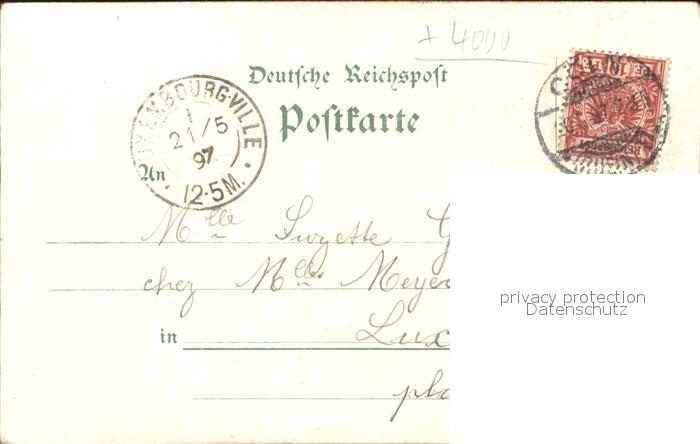 + 4000
Deutsche Reichspost
Postkarte
LUXEMBOURG-VILLE
21/5
97
12-5M.
10
An
Mlle Suzette G
chez Mlles Meye
privacy protection
Datenschutz
in Lux
pla